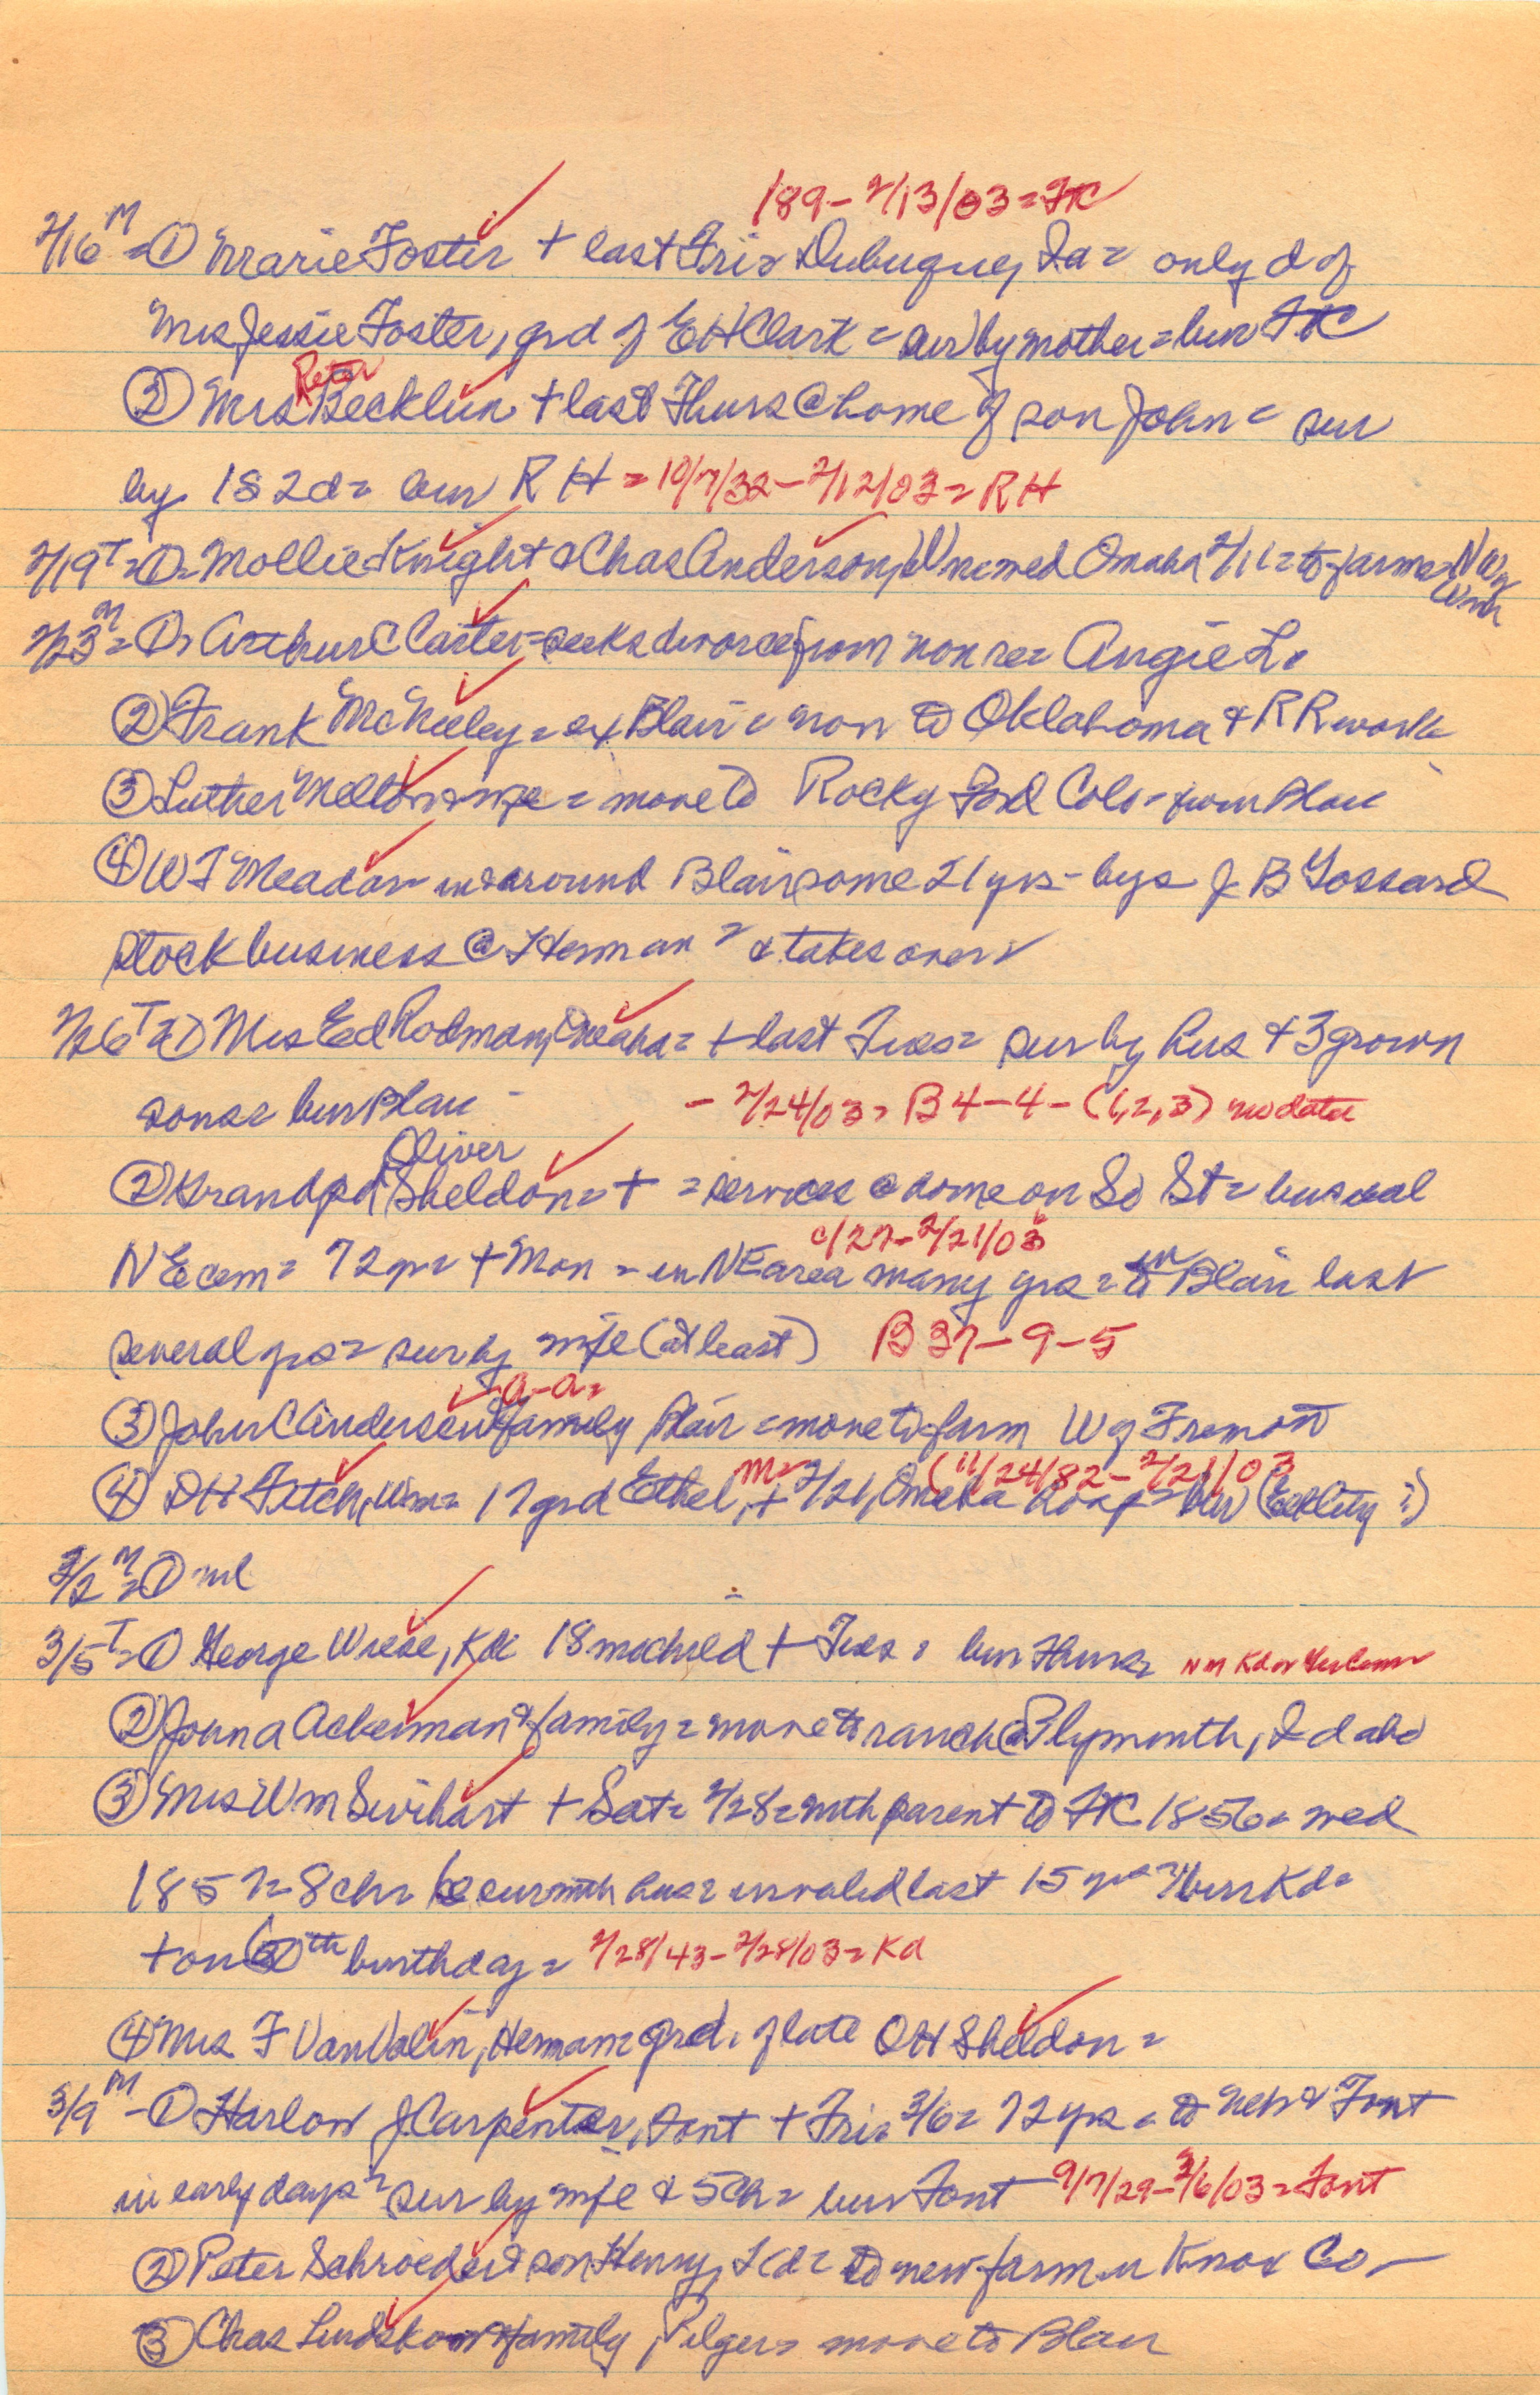 189 - 2/13/03 = FtC
2/16 M = ① Marie Foster + last Fri = Dubuque, Ia = only d of
Mrs Jessie Foster, grd of E H Clark = sur by mother = bur FtC
Peter
② Mrs Becklun + last Thurs @ home of son John = sur
by 1S 2d = bur RH = 10/7/32 - 2/12/03 = RH
2/19 T = ① = Mollie Knight & Chas Anderson, wed Omaha 2/11 = to farm = NW of
Wash
2/23 M = ① = Arthur C Carter = seeks divorce from non res Angie L.
② Frank McNeeley = ex Blair = now to Oklahoma & RR work
③ Luther Melton & wife = move to Rocky Ford Colo = from Blair
④ W J Meador in & around Blair some 21 yrs - buys J B Gossard
stock business @ Herman = & takes over
2/26 T = ① Mrs Ed Rodman, Omaha = + last Tues = sur by hus & 3 grown
sons = bur Blair - - 2/24/03 = B 4-4-(1,2,3) no dates
Oliver
② Grandpa Sheldon = + = services @ home on So St = burial
c/27 - 2/21/03
NE cem = 72 yrs = + Mon = in NE area many yrs = in Blair last
several yrs = sur by wife (at least) B 37-9-5
a-a =
③ John C Andersen & family Blair = move to farm W of Fremont
m = (11/24/82 - 2/21/03
④ D H Fitch, Wm = 17 grd Ethel, + 2/21, Omaha Hosp = bur ( City ?)
3/2 M = ① nil
3/5 T = ① George Wiese, Kd 18 mo child + Tues = bur Thurs = NM Kd or
② John A Ackerman & family = move to ranch @ Plymouth, Idaho
③ Mrs Wm Swihart + Sat = 2/28 = with parent to FtC 1856 = wed
1857 = 8 ch = sur with hus = invalid last 15 yrs = bur Kd =
+ on 60th birthday = 2/28/43 - 2/28/03 = Kd
④ Mrs F VanValin, Herman = grd. of late O H Sheldon =
3/9 M - ① Harlow J Carpenter, Font + Fri = 3/6 = 72 yrs = to Neb & Font
in early days = sur by wife & 5 ch = bur Font 9/7/29 - 3/6/03 = Font
② Peter Schroeder & son Henry, Kd = to new farm in Knox Co -
③ Chas Lindskov & family, Pilger = move to Blair